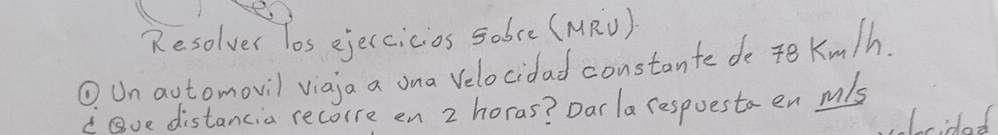 Resolver los ejercicios sobre (MRU).
① Un automovil viaja a una velocidad constante de 78 Km/h.
¿ Que distancia recorre en 2 horas? Dar la respuesta en m/s